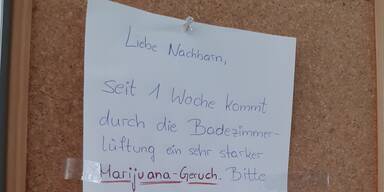 Liebe Nachbarn,
seit 1 Woche kommt
durch die Badezimmer-
lüftung ein sehr starker
Marijuana-Geruch. Bitte